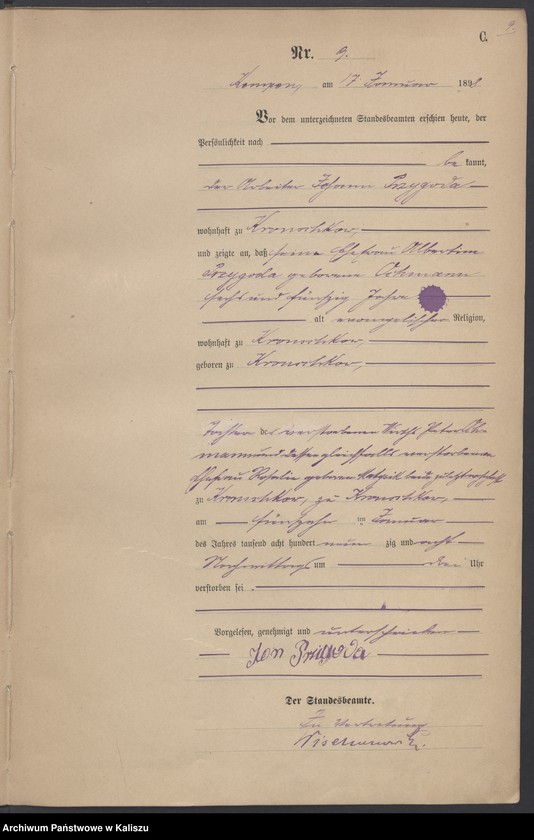 9
C.
Nr. 9.
Kempen, am 17 Januar 1898
Vor dem unterzeichneten Standesbeamten erschien heute, der
Persönlichkeit nach
be kannt,
der Arbeiter Johann Przygoda
wohnhaft zu
und zeigte an, daß seine Ehefrau Albertine
Przygoda geborene Ochmann
sechs und fünfzig Jahre
alt evangelischer Religion,
wohnhaft zu
geboren zu
Tochter des verstorbenen Wirths Peter
und dessen gleichfalls verstorbenen
Ehefrau Rosalie geboren
zu zu
am fünfzehn ten Januar
des Jahres tausend acht hundert neun zig und acht
Nachmittags um drei Uhr
verstorben sei .
Vorgelesen, genehmigt und unterschrieben
Jon Przygoda
Der Standesbeamte.
In Vertretung
Archiwum Państwowe w Kaliszu